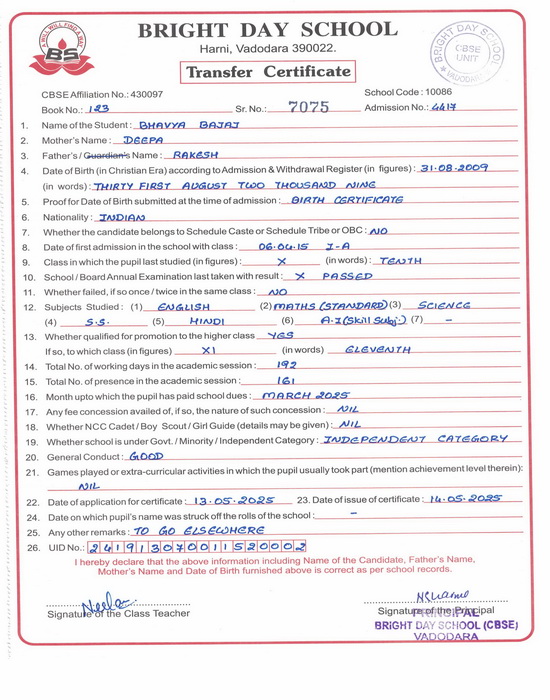 A WILL WILL FIND A WAY
BS
BRIGHT DAY SCHOOL
Harni, Vadodara 390022.
Transfer Certificate
BRIGHT DAY SCHOOL
CBSE
UNIT
VADODARA
CBSE Affiliation No.: 430097 School Code : 10086
Book No.: 123 Sr. No.: 7075 Admission No.: 4417
1. Name of the Student : BHAVYA BAJAJ
2. Mother's Name : DEEPA
3. Father's / Guardian's Name : RAKESH
4. Date of Birth (in Christian Era) according to Admission & Withdrawal Register (in figures) : 31-08-2009
(in words) : THIRTY FIRST AUGUST TWO THOUSAND NINE
5. Proof for Date of Birth submitted at the time of admission : BIRTH CERTIFICATE
6. Nationality : INDIAN
7. Whether the candidate belongs to Schedule Caste or Schedule Tribe or OBC : NO
8. Date of first admission in the school with class : 06.04.15 I-A
9. Class in which the pupil last studied (in figures) : X (in words) : TENTH
10. School / Board Annual Examination last taken with result : X PASSED
11. Whether failed, if so once / twice in the same class : NO
12. Subjects Studied : (1) ENGLISH (2) MATHS (STANDARD) (3) SCIENCE
(4) S.S. (5) HINDI (6) A.I (Skill Subj.) (7) -
13. Whether qualified for promotion to the higher class YES
If so, to which class (in figures) XI (in words) ELEVENTH
14. Total No. of working days in the academic session : 192
15. Total No. of presence in the academic session : 161
16. Month upto which the pupil has paid school dues : MARCH 2025
17. Any fee concession availed of, if so, the nature of such concession : NIL
18. Whether NCC Cadet / Boy Scout / Girl Guide (details may be given) : NIL
19. Whether school is under Govt. / Minority / Independent Category : INDEPENDENT CATEGORY
20. General Conduct : GOOD
21. Games played or extra-curricular activities in which the pupil usually took part (mention achievement level therein):
NIL
22. Date of application for certificate : 13.05.2025 23. Date of issue of certificate : 14.05.2025
24. Date on which pupil's name was struck off the rolls of the school : -
25. Any other remarks : TO GO ELSEWHERE
26. UID No.: 241913070011520002
I hereby declare that the above information including Name of the Candidate, Father's Name,
Mother's Name and Date of Birth furnished above is correct as per school records.
Signature of the Class Teacher Signature of the Principal
PRINCIPAL
BRIGHT DAY SCHOOL (CBSE)
VADODARA